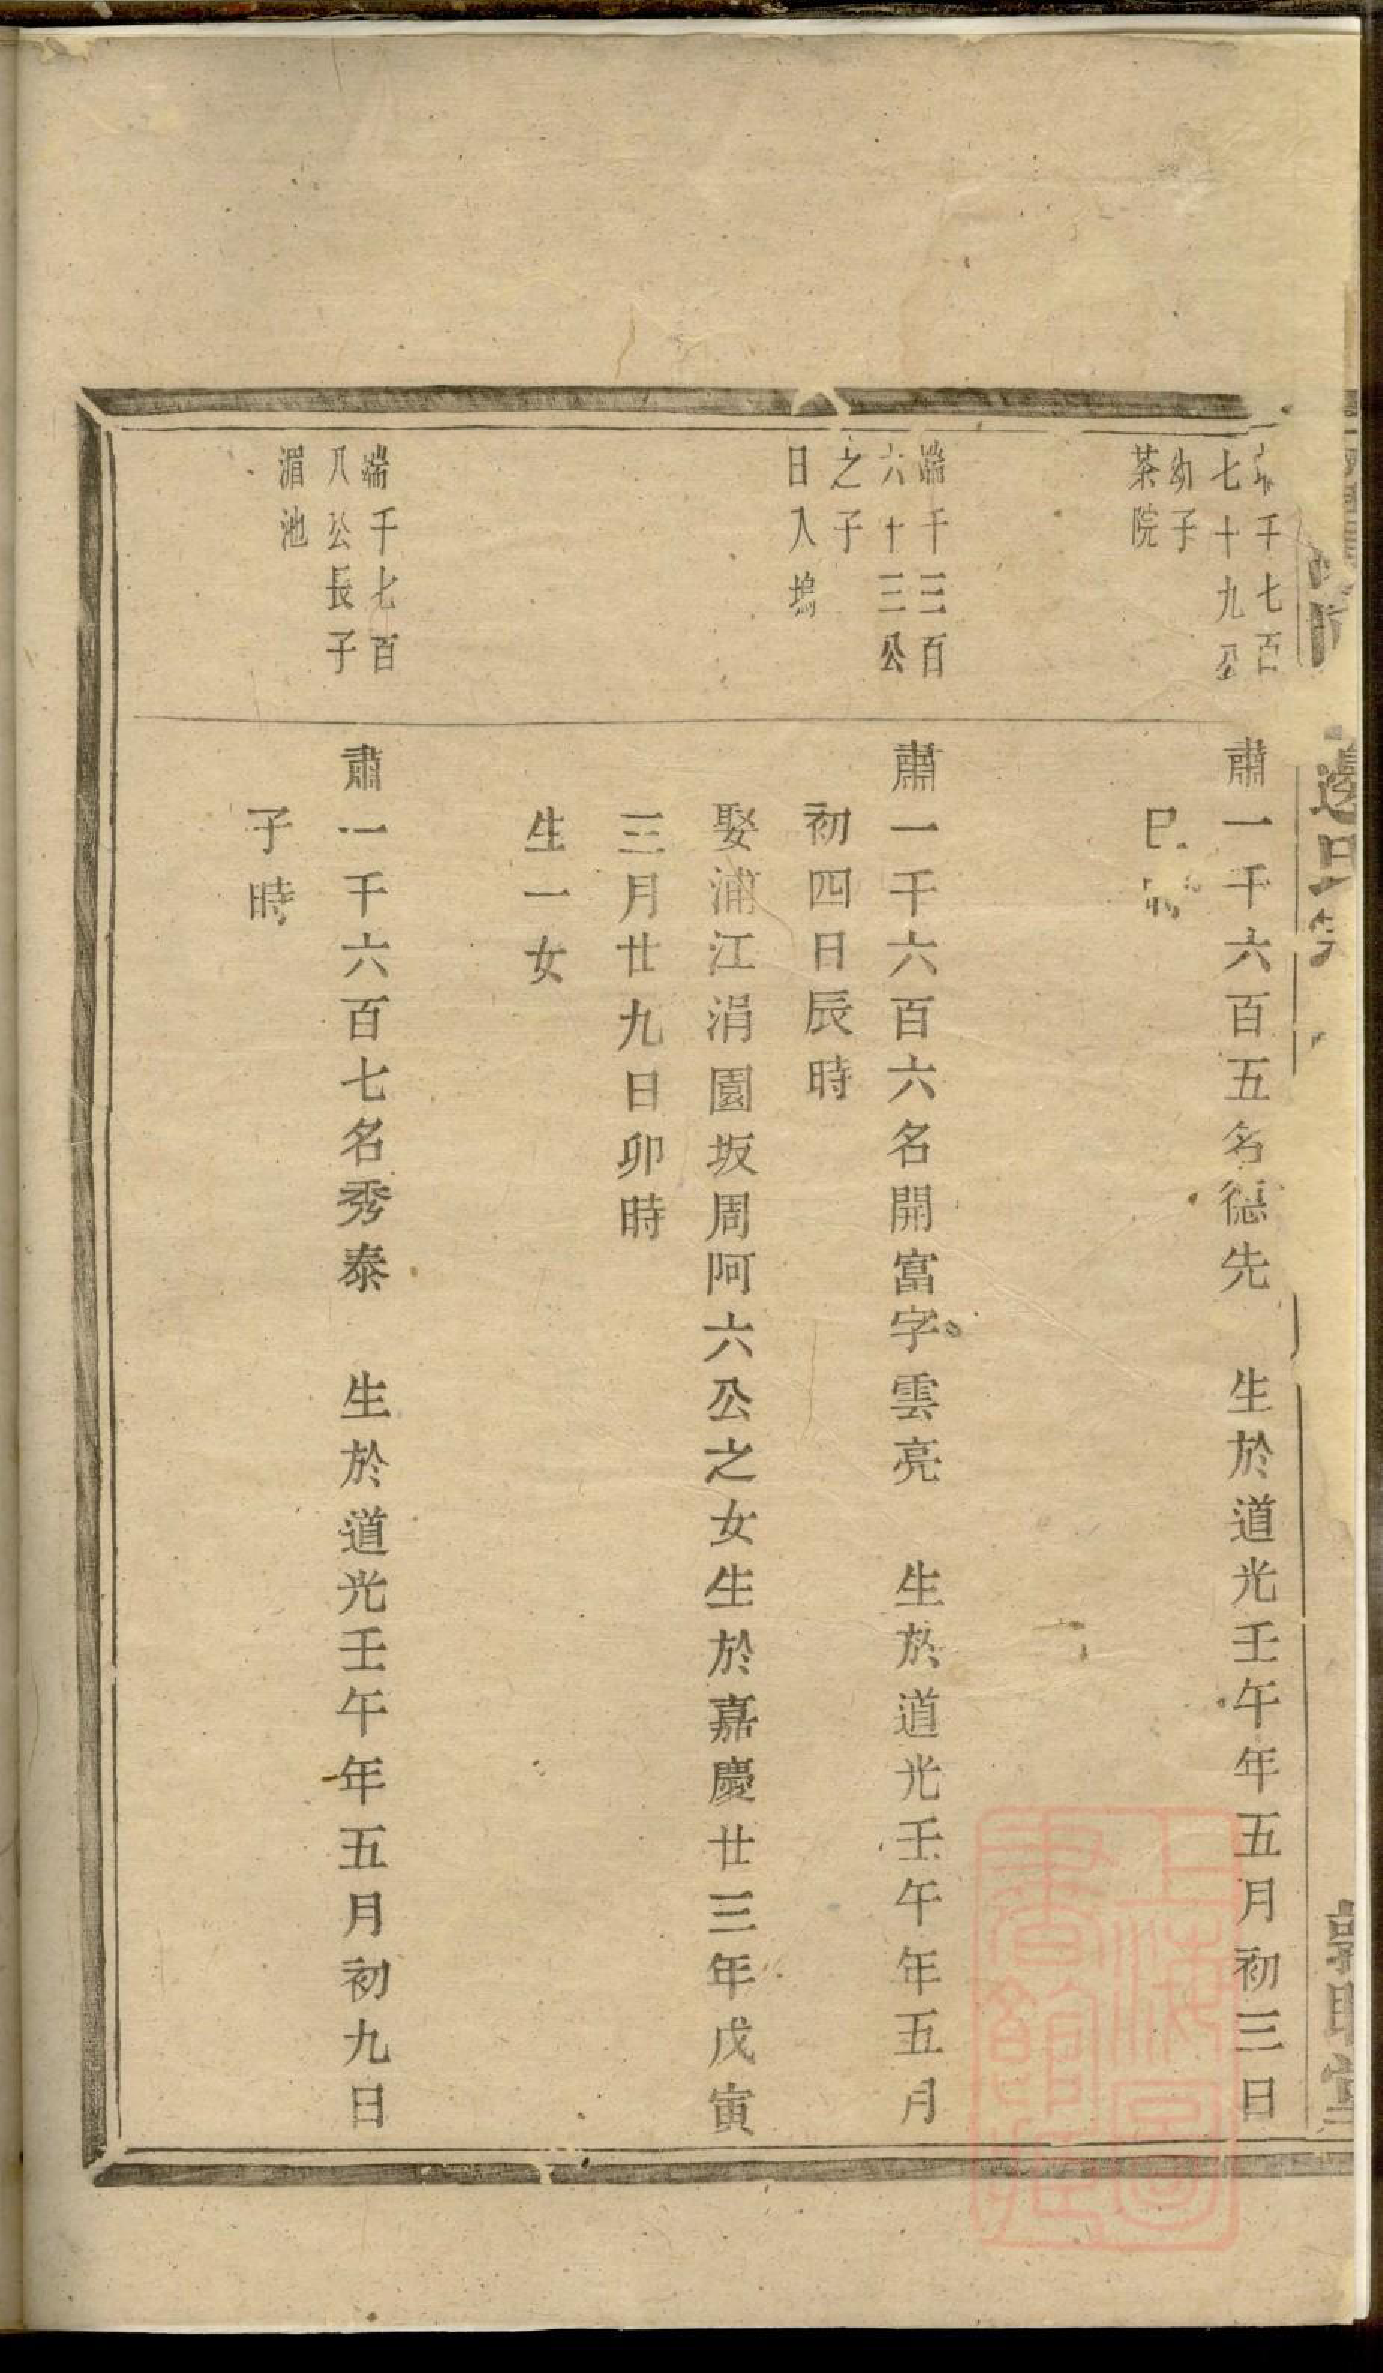 千七百
七十九公
幼子
茶院
肅一千六百五名德先　生於道光壬午年五月初三日
巳時
端千三百
六十三公
之子
日入塢
肅一千六百六名開富字雲亮　生於道光壬午年五月
初四日辰時
娶浦江涓園坂周阿六公之女生於嘉慶廿三年戊寅
三月廿九日卯時
生一女
端千七百
八公長子
湄池
肅一千六百七名秀泰　生於道光壬午年五月初九日
子時
邊氏宗
敦睦堂
上海圖
書館藏